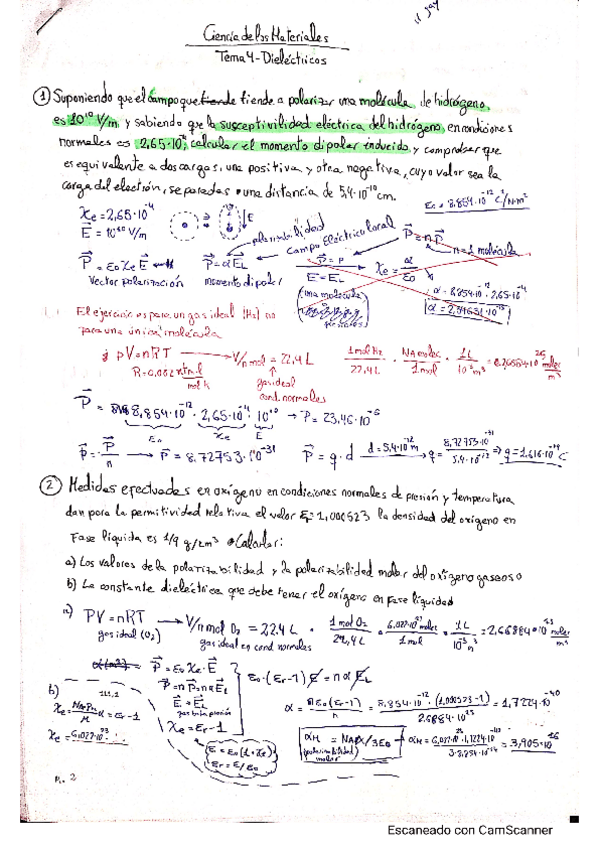 Ciencia de los Materiales
Tema 4 - Dieléctricos
① Suponiendo que el campo que tiende tiende a polarizar una molécula de hidrógeno,
es 10¹⁰ V/m y sabiendo que la susceptivilidad eléctrica del hidrógeno, en condiciones
normales es 2,65·10⁻⁴, calcular el momento dipolar inducido, y comprobar que
es equivalente a dos cargas, una positiva y otra negativa, cuyo valor sea la
carga del electrón, separadas una distancia de 5,4·10⁻¹⁰ cm.
ε₀ = 8,854·10⁻¹² C²/N·m²
χe = 2,65·10⁻⁴
E = 10¹⁰ V/m
P = ε₀ χe E
Vector polarización
P = α E_L
momento dipolar
polarizabilidad
Campo Eléctrico local
P = n P
n = 1 molécula
E = E_L
χe = α/ε₀
(una molécula
α = 8,854·10⁻¹² · 2,65·10⁻⁴
El ejercicio es para un gas ideal (H₂) no
para una única molécula
pV = nRT → V/n mol = 22,4 L
gas ideal
cond. normales
1 mol H₂ / 22,4 L · NA molec / 1 mol · 1 L / 10⁻³ m³
P = 8,854·10⁻¹² · 2,65·10⁻⁴ · 10¹⁰ → P = 23,46·10⁻⁶
ε₀ χe E
P = P/n → P = 8,72753·10⁻³¹
P = q·d
d = 5,4·10⁻¹² m → q = 8,72753·10⁻³¹ / 5,4·10⁻¹² → q = 1,616·10⁻¹⁹ C
② Medidas efectuadas en oxígeno en condiciones normales de presión y temperatura
dan para la permitividad relativa el valor εr = 1,000523 la densidad del oxígeno en
Fase líquida es 1,19 g/cm³ Calcular:
a) Los valores de la polarizabilidad y la polarizabilidad molar del oxígeno gaseoso
b) La constante dieléctrica que debe tener el oxígeno en fase líquida
a) PV = nRT → V/n mol O₂ = 22,4 L
gas ideal (O₂)
gas ideal en cond normales
1 mol O₂ / 22,4 L · 6,027·10²³ molec / 1 mol · 1 L / 10⁻³ m³ = 2,66884·10²⁵ molec/m³
P = ε₀ χe · E
P = n P = n α E_L
E = E_L
gas baja presión
χe = εr - 1
ε₀·(εr - 1) E = n α E_L
α = ε₀(εr - 1) / n = 8,854·10⁻¹² · (1,000523 - 1) / 2,6884·10²⁵ = 1,7224·10⁻⁴⁰
b)
E = ε₀(1 + χe)
εr = ε/ε₀
αM = NA α / 3ε₀
(polarizabilidad
molar)
Escaneado con CamScanner